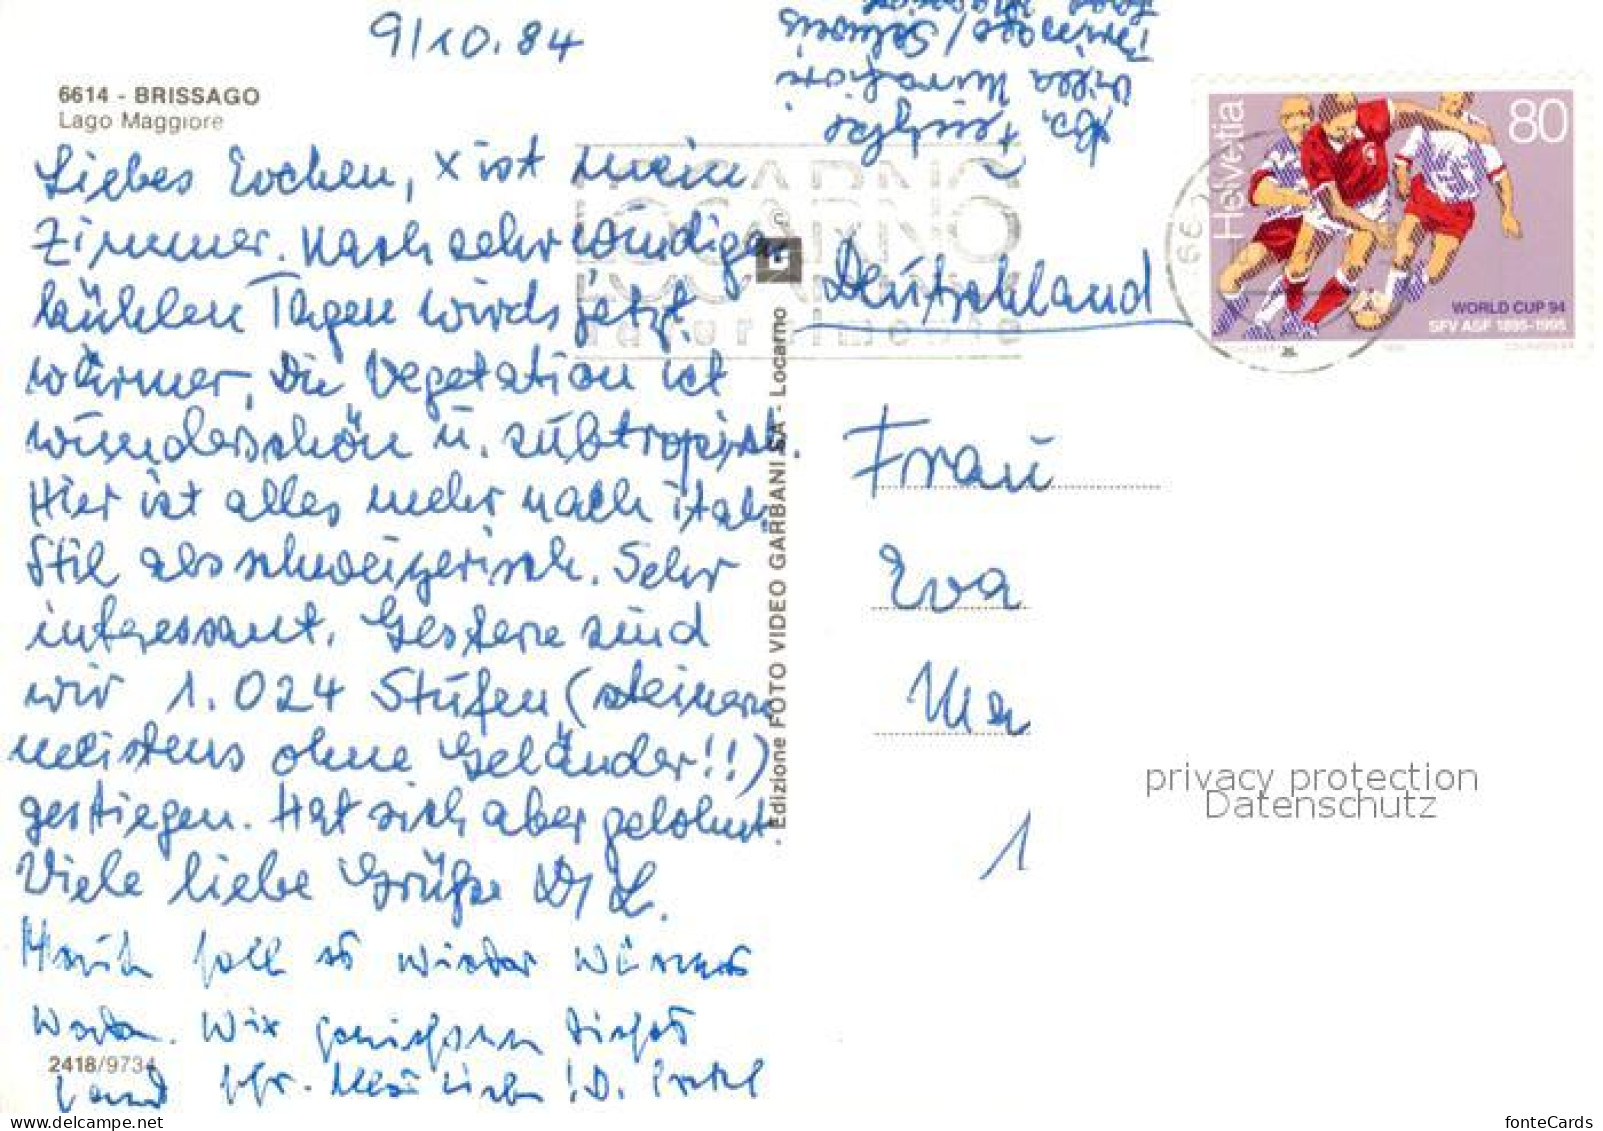 9/10.84
6614 - BRISSAGO
Lago Maggiore
Liebes Evchen, x ist mein
Zimmer. Nach sehr windigen
kühlen Tagen wirds jetzt
wärmer. Die Vegetation ist
wunderschön u. subtropisch.
Hier ist alles mehr nach ital.
Stil als schweizerisch. Sehr
interessant. Gestern sind
wir 1.024 Stufen (steinern
meistens ohne Geländer!!)
gestiegen. Hat sich aber gelohnt.
Viele liebe Grüße
soll es wieder wärmer
werden. Wir genießen dieses
Land sehr.
2418/9734
Edizione FOTO VIDEO GARBANI SA - Locarno
LOCARNO
Abs.
Villa
/Schweiz
Helvetia
80
WORLD CUP 94
SFV ASF 1895-1995
Deutschland
Frau
Eva
1
privacy protection
Datenschutz
fonteCards